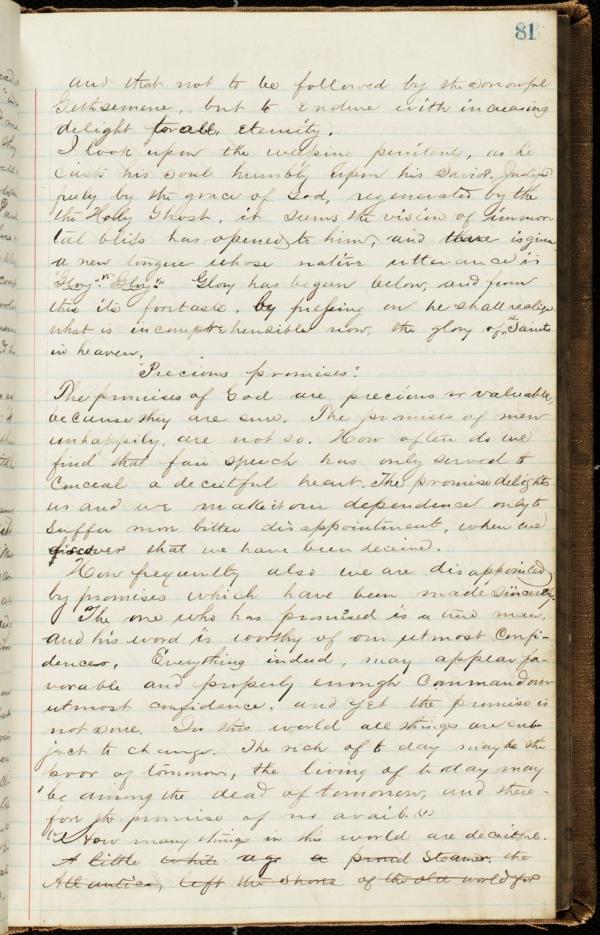 81
and that not to be followed by the sorrowful
Gethsemene, but to endure with increasing
delight for all eternity.
I look upon the weeping penitent, as he
casts his soul humbly upon his Savior, Justified
freely by the grace of God, regenerated by the
the Holy Ghost, it seems the vision of immor-
tal bliss has opened to him, and there is given
a new tongue whose native utterance is
"Glory." "Glory." Glory has begun below, and from
this its foretaste, by pressing on he shall realize
what is incomprehensible now, the glory of the Saints
in heaven.
"Precious promises."
The promises of God are precious or valuable,
because they are sure. The promises of men
unhappily, are not so. How often do we
find that fair speech has only served to
conceal a deceitful heart. The promise delights
us and we make it our dependence only to
suffer more bitter disappointment, when we
discover that we have been deceived.
How frequently also we are disappointed
by promises which have been made sincerely.
The one who has promised is a true man,
and his word is worthy of our utmost confi-
dence. Everything indeed, may appear fa-
vorable and properly enough command our
utmost confidence, and yet the promise is
not sure. In this world all things are sub-
ject to change. The rich of to day may be the
poor of tomorrow, the living of to day may
be among the dead of tomorrow, and there-
fore the promise of no avail.
How many things in this world are deceitful.
A little while ago a proud Steamer, the
Atlantic, left the shores of the old world for